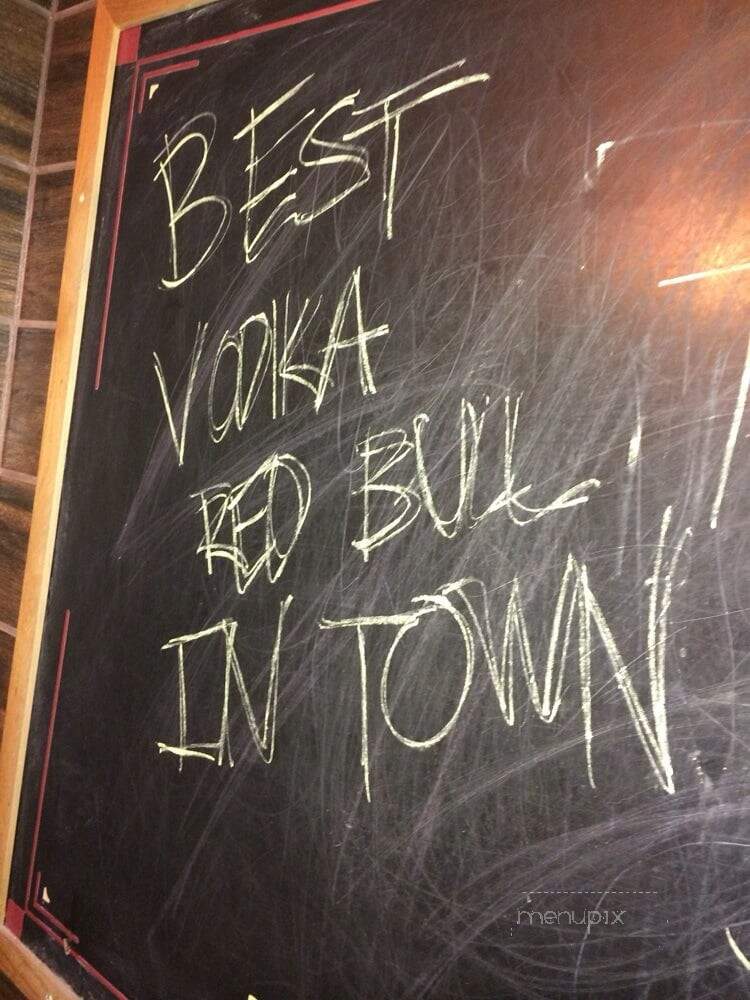 BEST
VODKA
RED BULL
IN TOWN
menupix